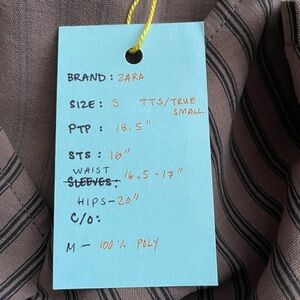 BRAND : ZARA
SIZE : S TTS/TRUE
SMALL
PTP : 18.5"
STS : 16"
WAIST
SLEEVES : 16.5 - 17"
HIPS - 20"
C/O :
M - 100% POLY